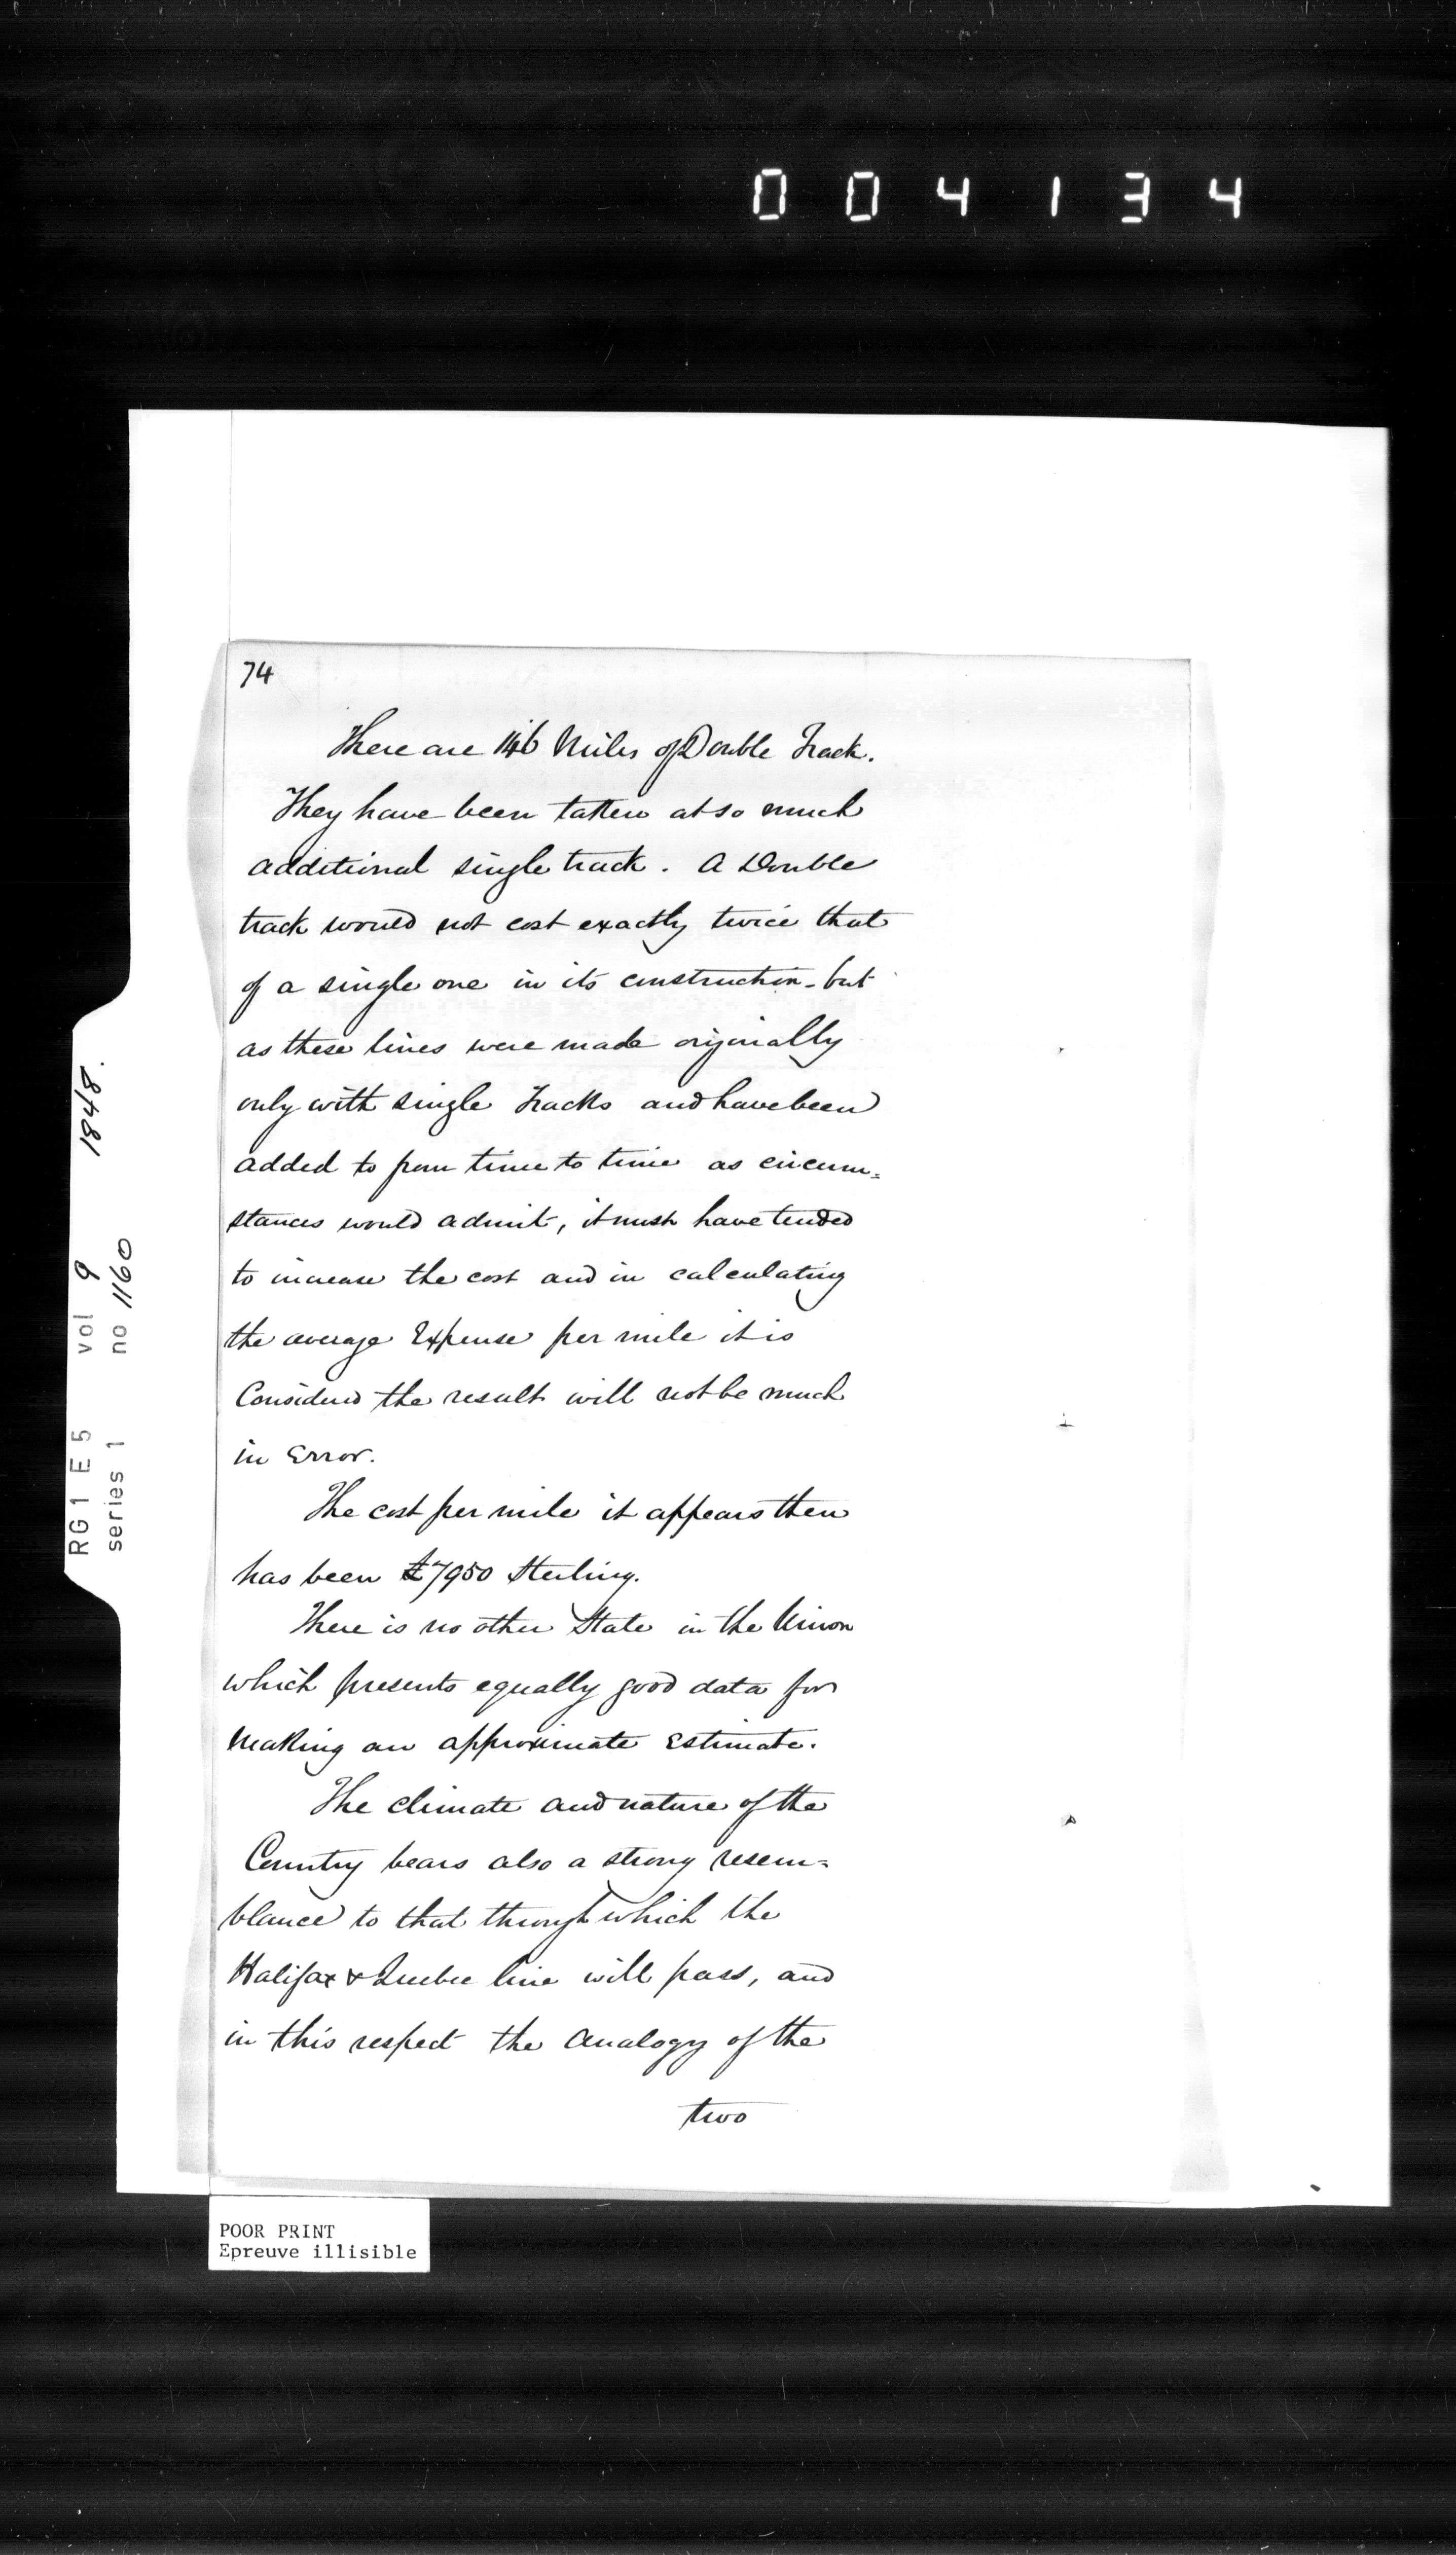 004134
74
There are 146 Miles of Double Track.
They have been taken at so much
additional single track. A Double
track would not cost exactly twice that
of a single one in its construction - but
as these lines were made originally
only with single Tracks and have been
added to from time to time as circum=
stances would admit, it must have tended
to increase the cost and in calculating
the average Expense per mile it is
Considered the result will not be much
in Error.
The cost per mile it appears then
has been £7950 Sterling.
There is no other State in the Union
which presents equally good data for
Making an approximate Estimate.
The climate and nature of the
Country bears also a strong resem=
blance to that through which the
Halifax & Quebec line will pass, and
in this respect the Analogy of the
two
RG 1 E 5 vol 9 1848.
series 1 no 1160
POOR PRINT
Epreuve illisible